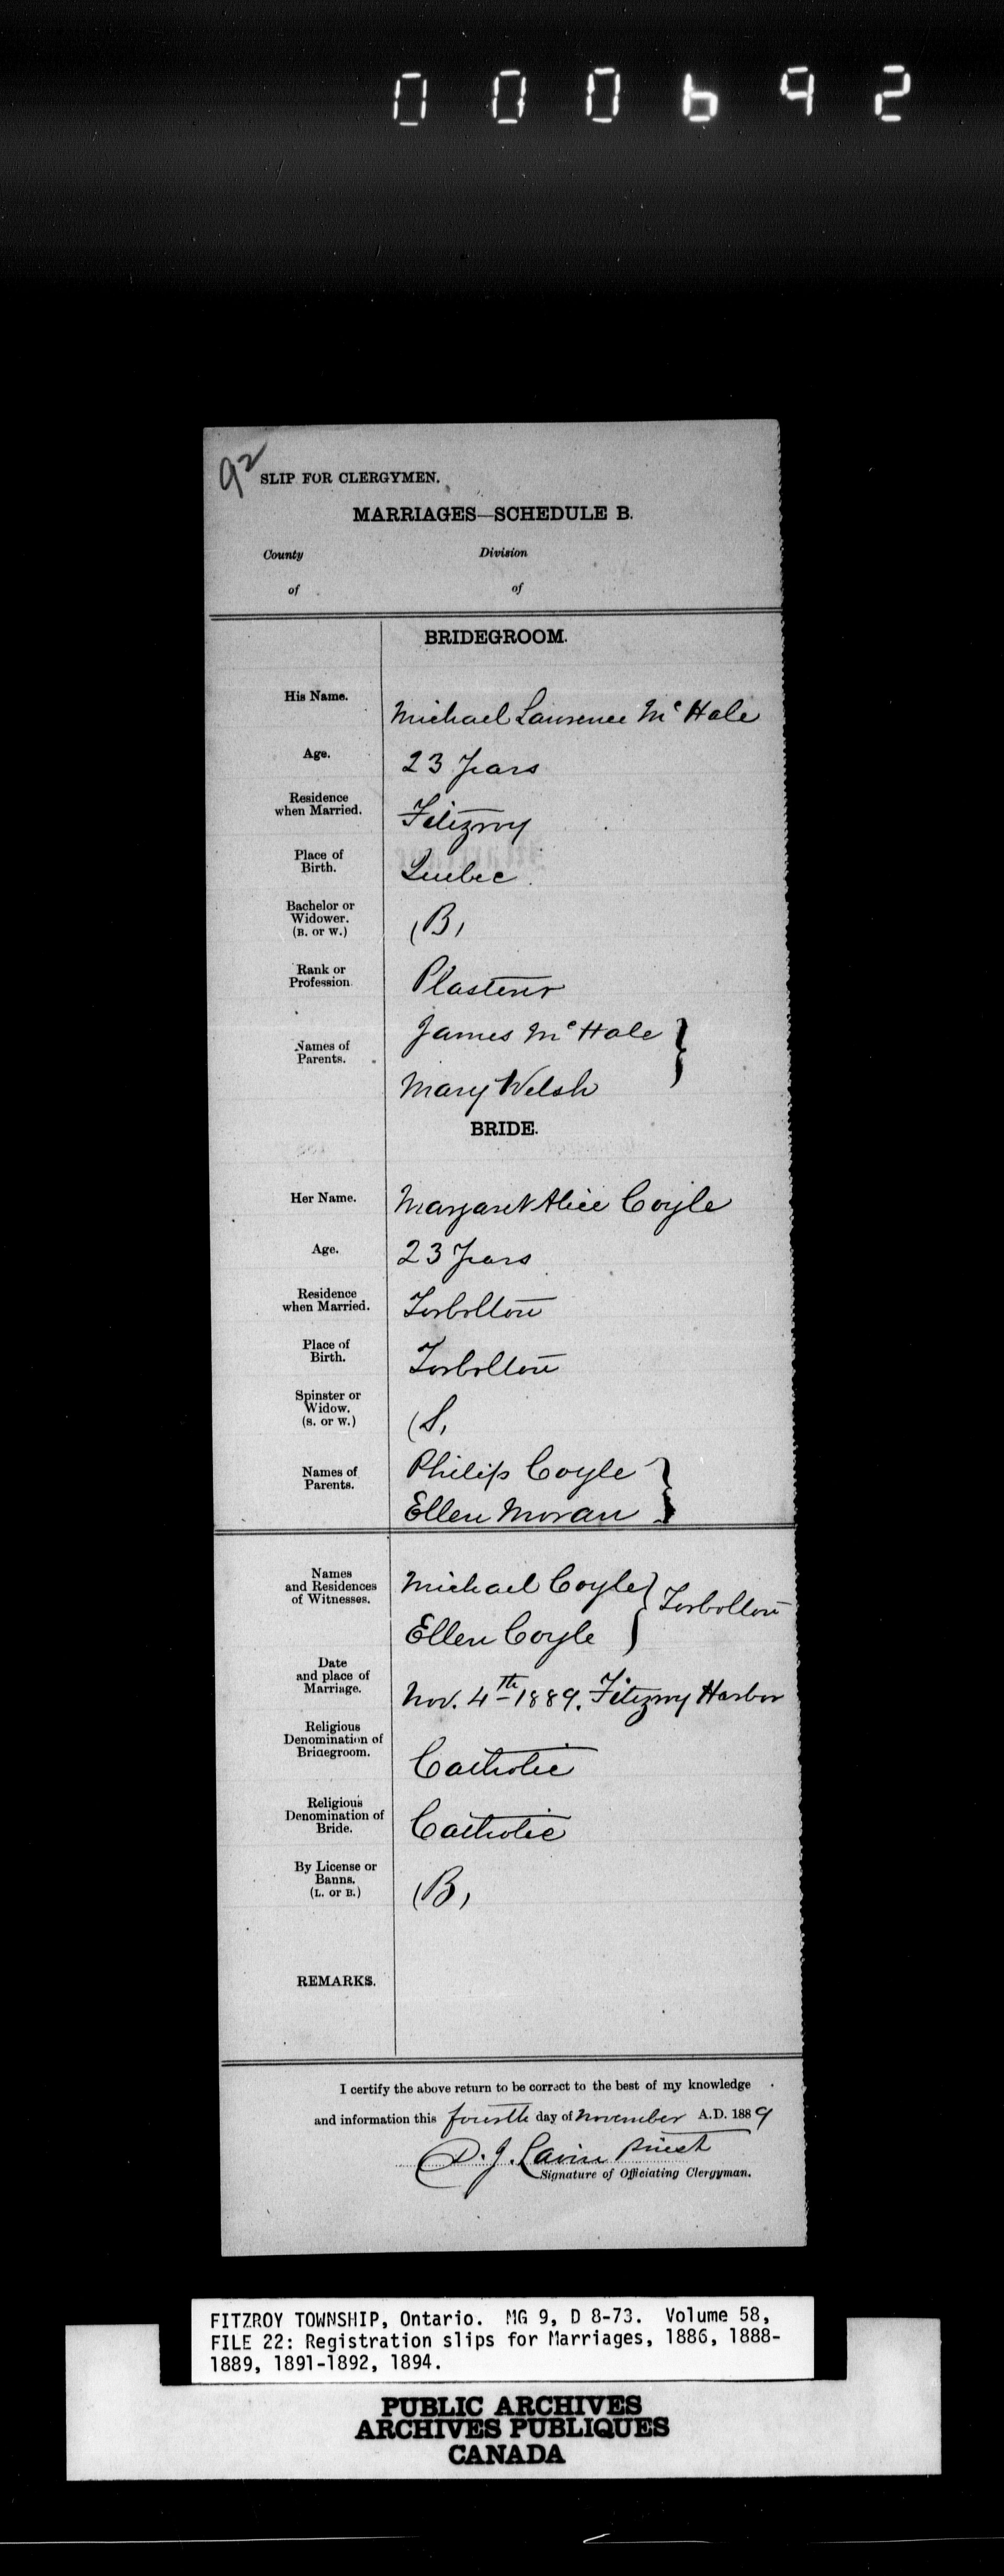 000692
92
SLIP FOR CLERGYMEN.
MARRIAGES—SCHEDULE B.
County
Division
of
of
BRIDEGROOM.
His Name.
Michael Lawrence McHale
Age.
23 Years
Residence
when Married.
Fitzroy
Place of
Birth.
Quebec
Bachelor or
Widower.
(B. or W.)
(B)
Rank or
Profession.
Plasterer
Names of
Parents.
James McHale
Mary Welsh
BRIDE.
Her Name.
Margaret Alice Coyle
Age.
23 Years
Residence
when Married.
Torbolton
Place of
Birth.
Torbolton
Spinster or
Widow.
(S. or W.)
(S)
Names of
Parents.
Philip Coyle
Ellen Moran
Names
and Residences
of Witnesses.
Michael Coyle
Ellen Coyle
Torbolton
Date
and place of
Marriage.
Nov. 4th 1889. Fitzroy Harbor
Religious
Denomination of
Bridegroom.
Catholic
Religious
Denomination of
Bride.
Catholic
By License or
Banns.
(L. or B.)
(B)
REMARKS.
I certify the above return to be correct to the best of my knowledge
and information this fourth day of November A.D. 1889
D. J. Lavin Priest
Signature of Officiating Clergyman.
FITZROY TOWNSHIP, Ontario. MG 9, D 8-73. Volume 58,
FILE 22: Registration slips for Marriages, 1886, 1888-
1889, 1891-1892, 1894.
PUBLIC ARCHIVES
ARCHIVES PUBLIQUES
CANADA